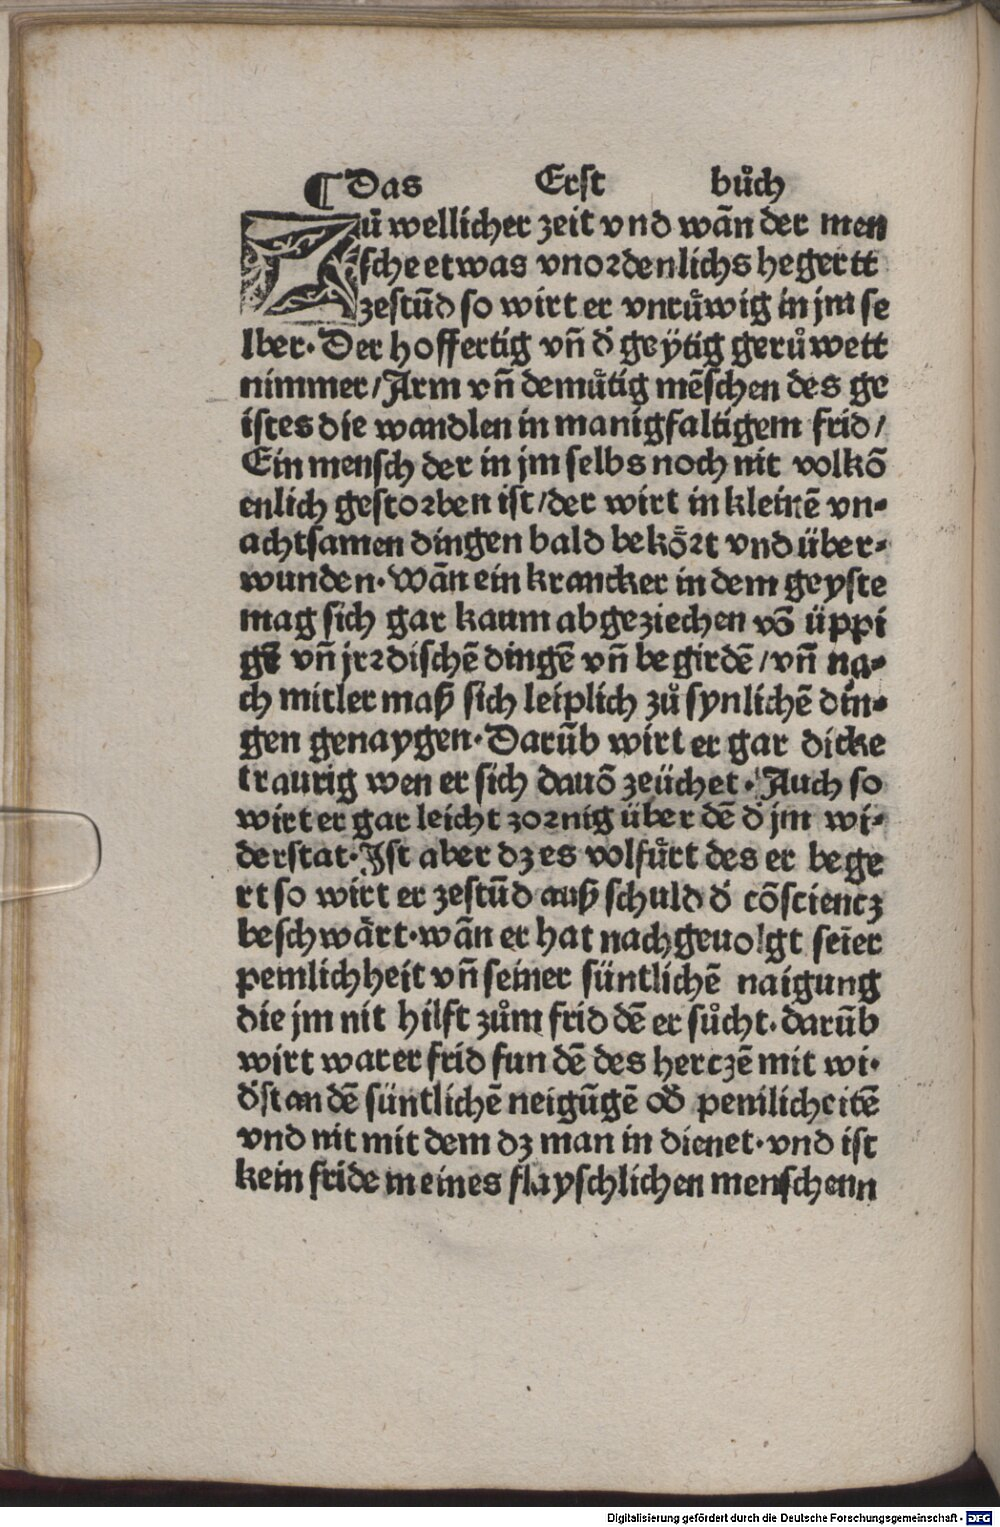 ¶ Das Erst bůch
Zů wellicher zeit vnd wān der men
sche etwas vnordenlichs hegertt
zestūd so wirt er vnrůwig in jm se
lber. Der hoffertig vn̄ d̕ geÿtig gerůwett
nimmer/Arm vn̄ demůtig mēschen des ge
istes die wandlen in manigfaltigem frid/
Ein mensch der in jm selbs noch nit volkō
enlich gestorben ist/der wirt in kleinē vn⸗
achtsamen dingen bald bekoͤrt vnd über⸗
wunden. Wān ein krancker in dem geyste
mag sich gar kaum abgeziechen vō üppi
gē vn̄ jrrdischē dingē vn̄ begirdē/vn̄ na⸗
ch mitler maß sich leiplich zů synlichē din⸗
gen genaygen. Darūb wirt er gar dicke
traurig wen er sich dauō zeüchet. Auch so
wirt er gar leicht zornig über dē d̕ jm wi⸗
derstat. Ist aber dz es volfůrt des er bege
rt so wirt er zestūd auß schuld d̕ cōsciencz
beschwaͤrt. wān er hat nachgeuolgt seīer
peinlichheit vn̄ seiner süntlichē naigung
die jm nit hilft zům frid dē er sůcht. darūb
wirt warer frid fundē des herczē mit wi⸗
d̕standē süntlichē neigūgē od̕ penilicheitē
vnd nit mit dem dz man in dienet. vnd ist
kein fride in eines flayschlichen menschenn
Digitalisierung gefördert durch die Deutsche Forschungsgemeinschaft - DFG